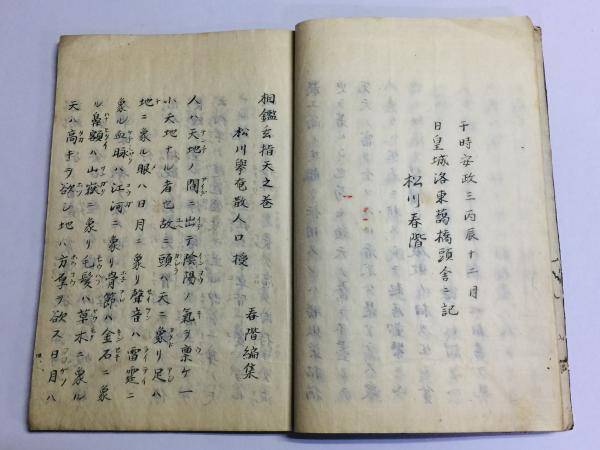 于時安政三丙辰十二月
日皇城洛東萬橋頭舎ニ記
松川春階
相鑑玄指天之巻
松川擧奄散人口授
春階編集
人ハ天地ノ間ニ出テ陰陽ノ氣ヲ稟ケ一
小天地ナル者也故ニ頭ハ天ニ象リ足ハ
地ニ象ル眼ハ日月ニ象リ聲音ハ雷霆ニ
象ル血脉ハ江河ニ象リ骨節ハ金石ニ象
ル鼻額ハ山嶽ニ象リ毛髪ハ草木ニ象ル
天ハ高キヲ欲シ地ハ方厚ヲ欲ス日月ハ